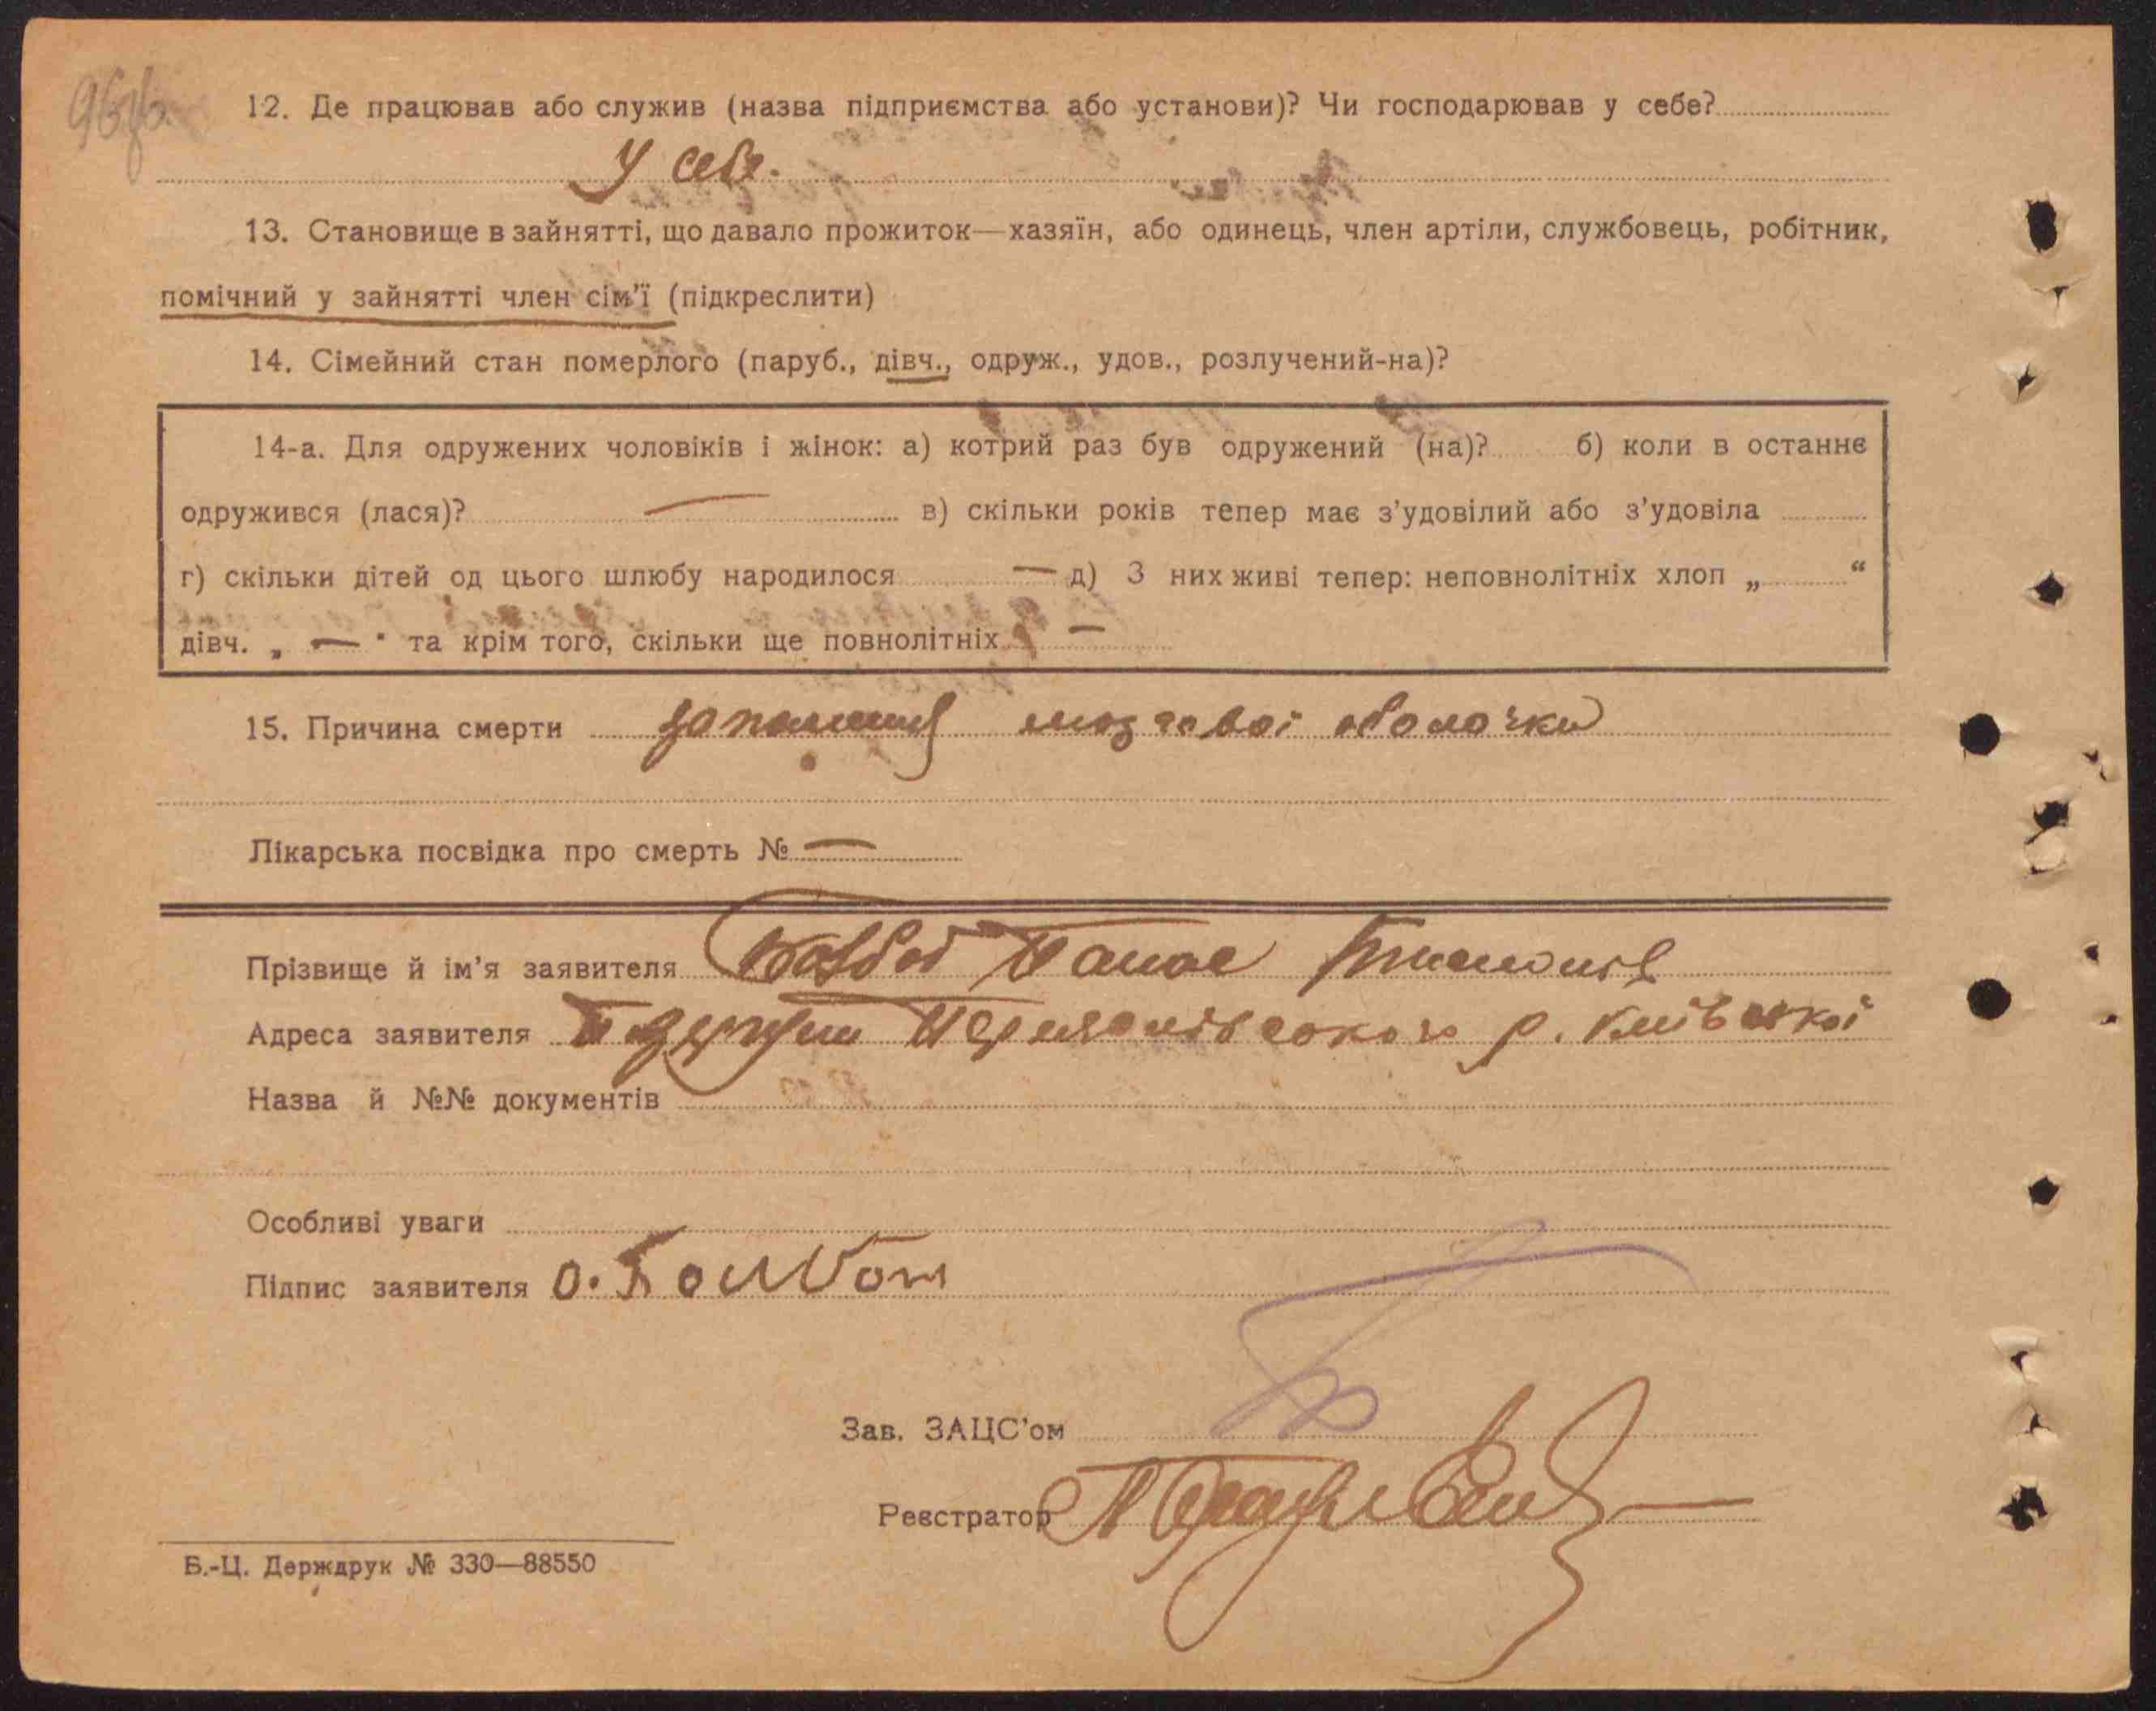 12. Де працював або служив (назва підприємства або установи)? Чи господарював у себе?
У себе.
13. Становище в зайнятті, що давало прожиток—хазяїн, або одинець, член артіли, службовець, робітник,
помічний у зайнятті член сім'ї (підкреслити)
14. Сімейний стан померлого (паруб., дівч., одруж., удов., розлучений-на)?
14-а. Для одружених чоловіків і жінок: а) котрий раз був одружений (на)? б) коли в останнє
одружився (лася)? — в) скільки років тепер має з'удовілий або з'удовіла
г) скільки дітей од цього шлюбу народилося — д) З них живі тепер: неповнолітніх хлоп „ “
дівч. „ — “ та крім того, скільки ще повнолітніх —
15. Причина смерти запалення мозгавоі оболочки
Лікарська посвідка про смерть № —
Прізвище й ім'я заявителя Панас
Адреса заявителя р. Київської
Назва й №№ документів
Особливі уваги
Підпис заявителя О. Болбот
Зав. ЗАЦС'ом
Реєстратор
Б.-Ц. Держдрук № 330—88550